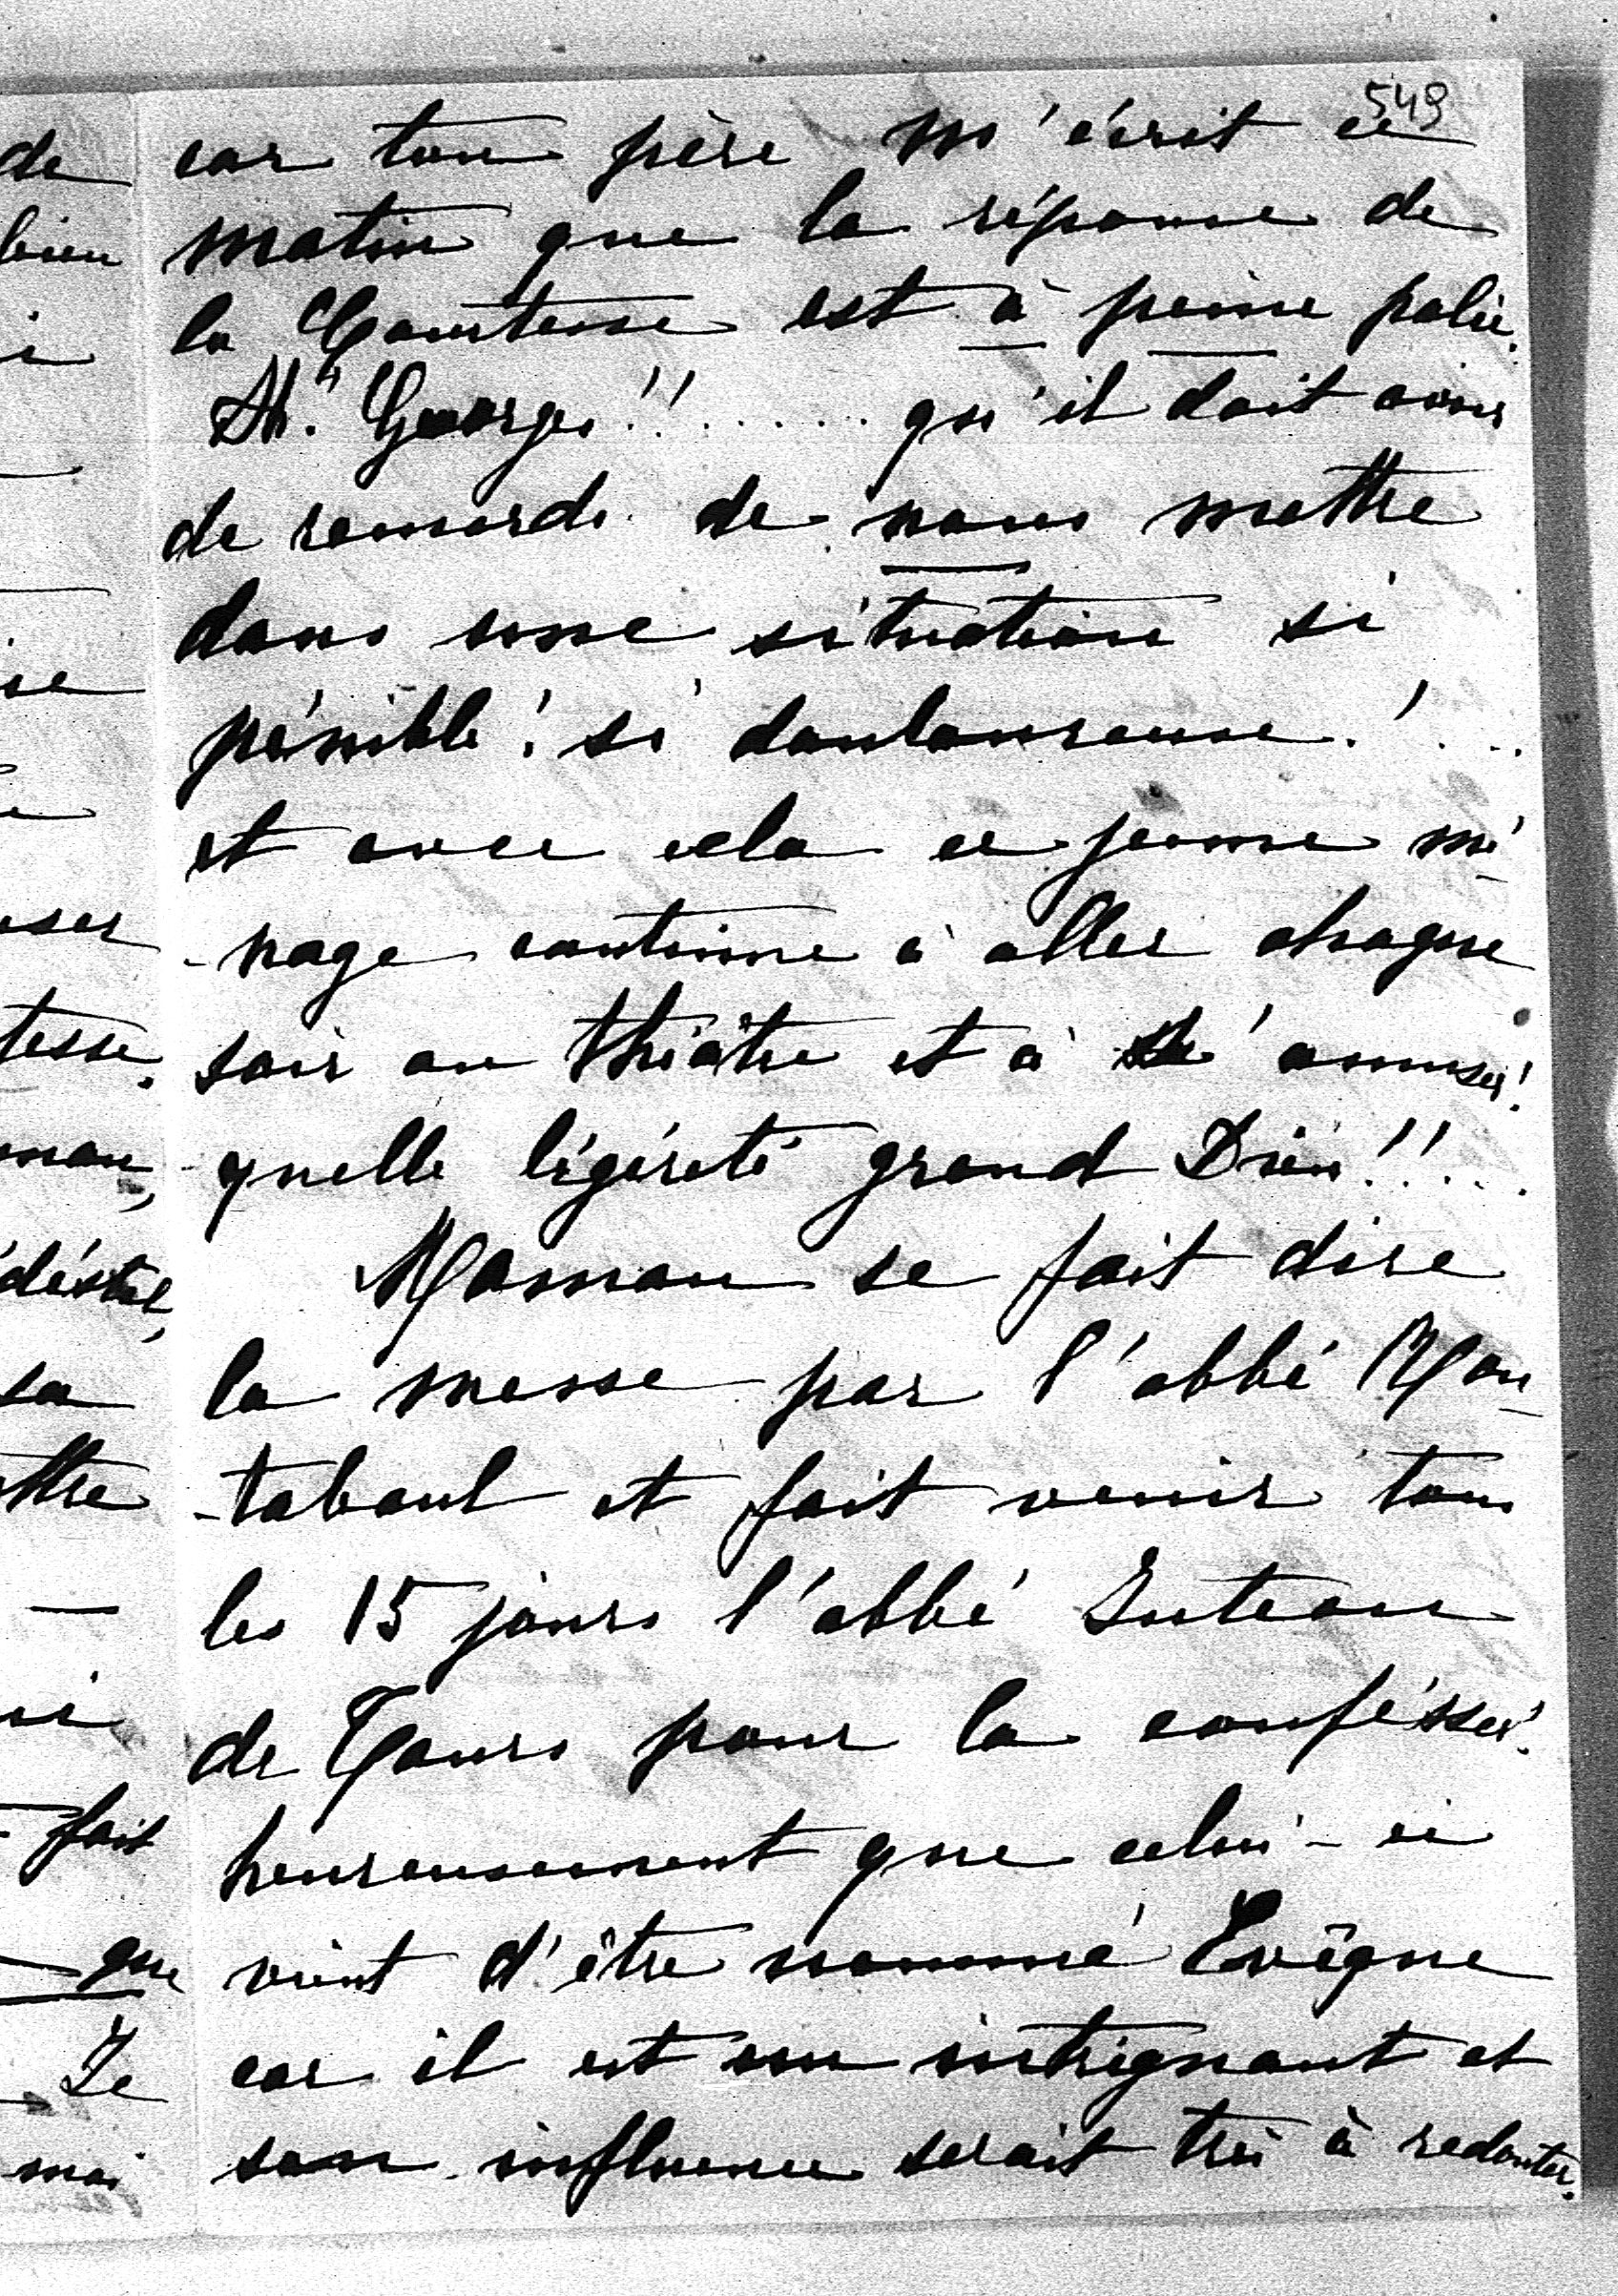 549
car ton père m'écrit ce
matin que la réponse de
la Comtesse est à peine polie.
Ah! Georges!!....... qu'il doit avoir
de remords de nous mettre
dans une situation si
pénible! si douloureuse!...
et avec cela ce jeune mé-
-nage continue à aller chaque
soir au théâtre et à s'amuser!
quelle légéreté grand Dieu!!....
Maman se fait dire
la messe par l'abbé Mon-
-taboul et fait venir tous
les 15 jours l'abbé Juteau
de Tours pour la confésser!
heureusement que celui-ci
vient d'être nommé Evêque
car il est un intrignant et
son influence serait très à redouter.
de
bien
tesse.
sa
fait
que
Je
moi